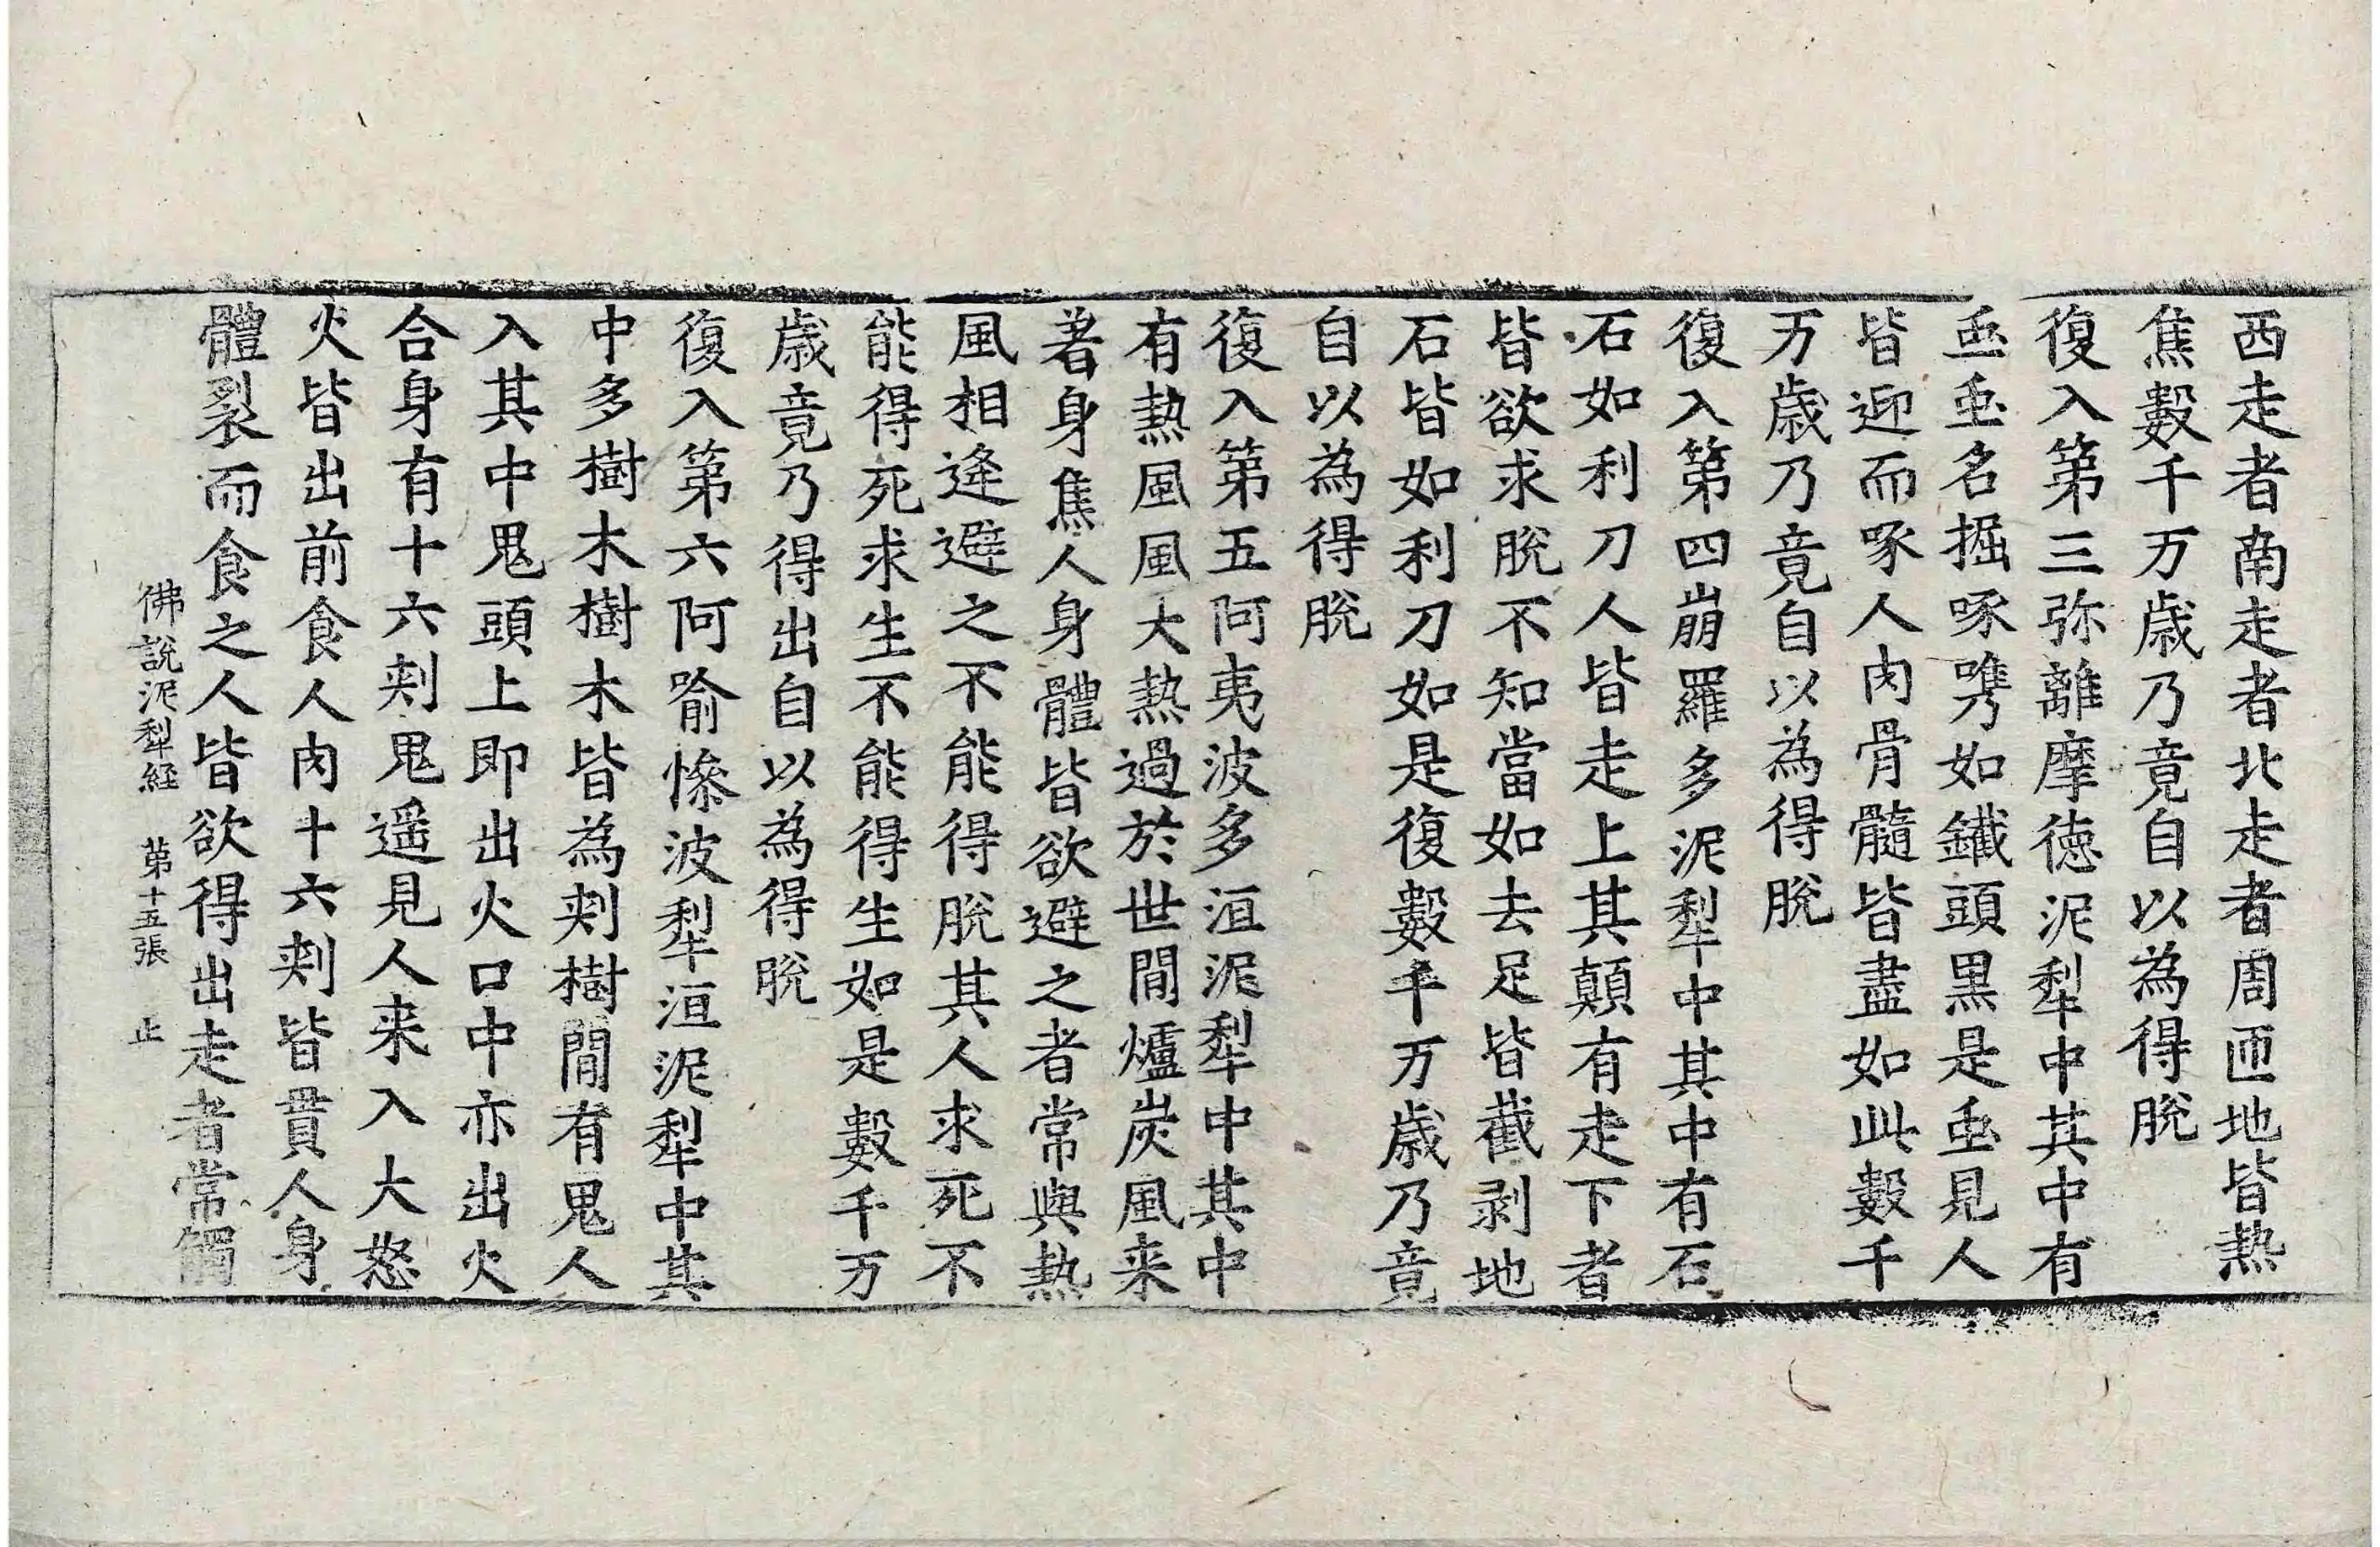 西走者南走者北走者周匝地皆熱
焦數千万歳乃竟自以為得脫
復入第三弥離摩德泥犁中其中有
䖝䖝名掘啄㗱如鐵頭黒是䖝見人
皆迎而啄人肉骨髓皆盡如此數千
万歳乃竟自以為得脫
復入第四崩羅多泥犁中其中有石
石如利刀人皆走上其顛有走下者
皆欲求脫不知當如去足皆截剥地
石皆如利刀如是復數千万歳乃竟
自以為得脫
復入第五阿夷波多洹泥犁中其中
有熱風風大熱過於世間爐炭風来
著身焦人身體皆欲避之者常與熱
風相逢避之不能得脫其人求死不
能得死求生不能得生如是數千万
歳竟乃得出自以為得脫
復入第六阿喻慘波犁洹泥犁中其
中多樹木樹木皆為刾樹間有鬼人
入其中鬼頭上即出火口中亦出火
合身有十六刾鬼遥見人来入大怒
火皆出前食人肉十六刾皆貫人身
體裂而食之人皆欲得出走者常觸
佛說泥犁経 第十五張 止